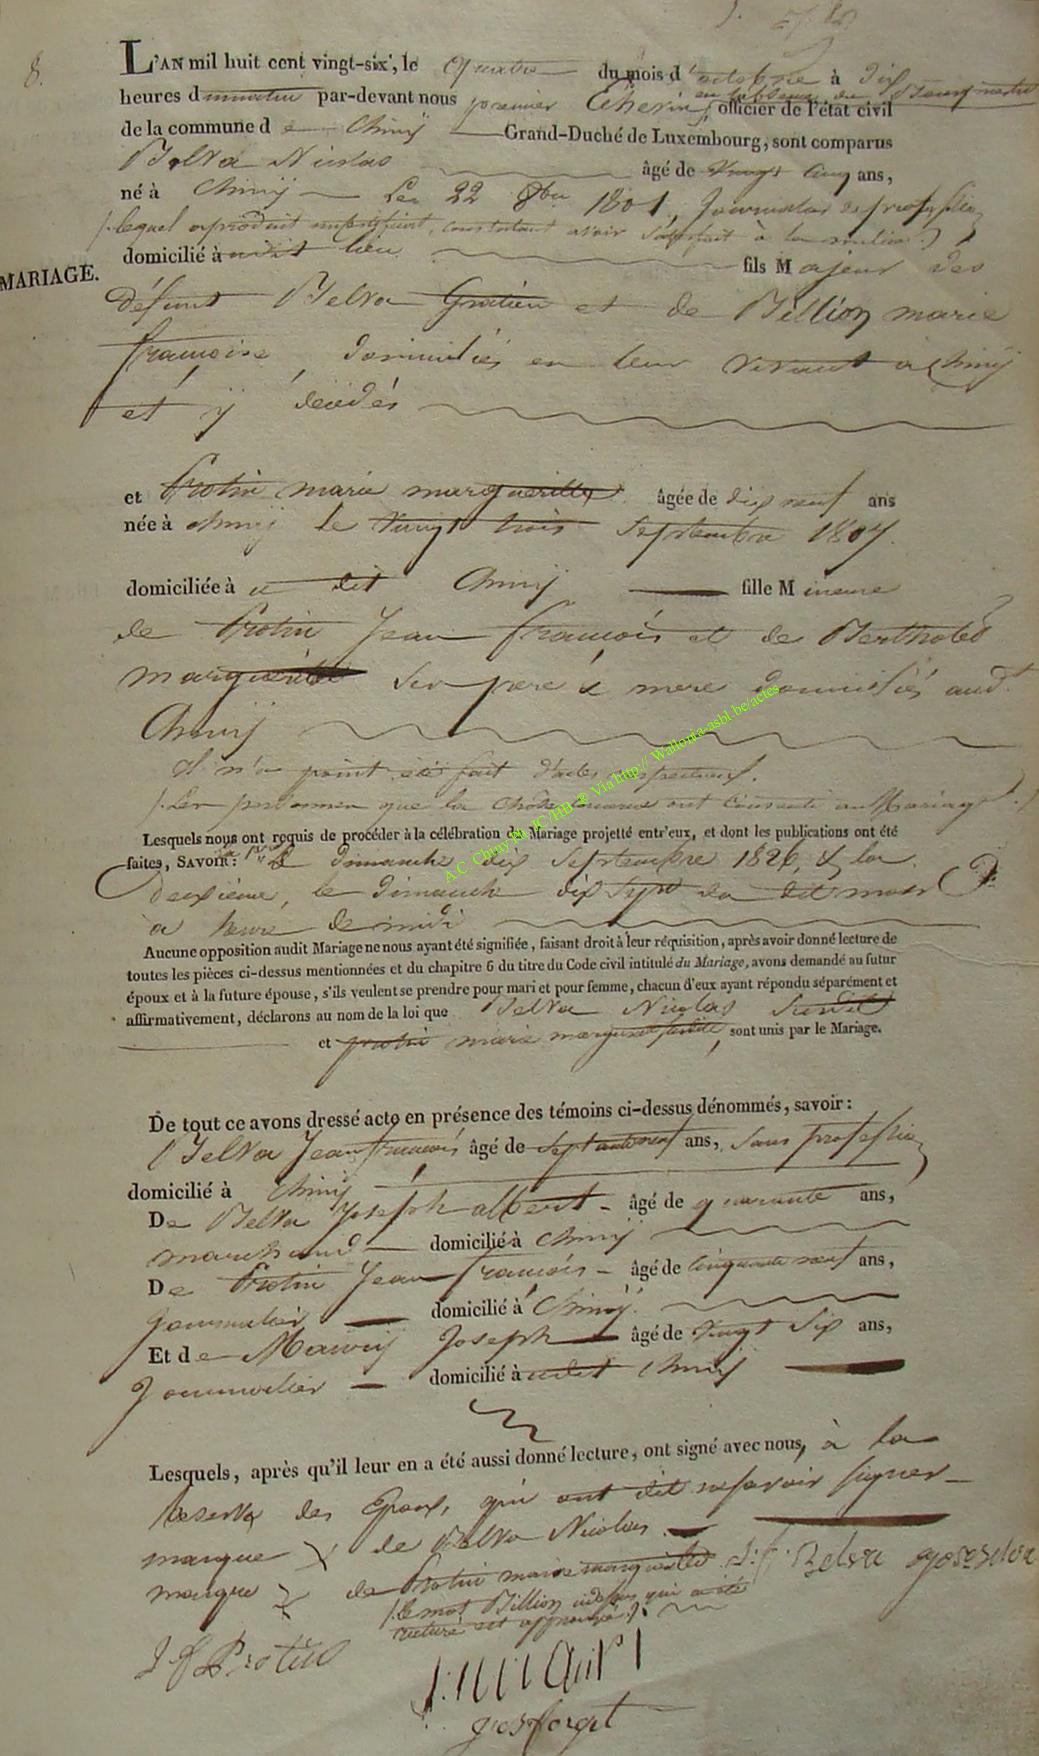 8.
L'AN mil huit cent vingt-six, le quatre du mois d'octobre à dix
heures du matin par-devant nous premier Echevin, officier de l'état civil
en tableau du Bourgmestre
de la commune de Chiny Grand-Duché de Luxembourg, sont comparus
Belva Nicolas âgé de vingt cinq ans,
né à Chiny Le 22 8bre 1801, journalier de profession
(lequel a produit un certificat, constatant avoir satisfait à la milice.)
domicilié à dit lieu fils Majeur des
MARIAGE.
défunt Belva Gratien et de Billion marie
françoise, domiciliés en leur vivant à Chiny
et y décédés
et Protin marie marguerite âgée de dix neuf ans
née à chiny le vingt trois Septembre 1807.
domiciliée à dit Chiny fille Mineure
de Protin Jean françois et de Berthold
marguerite Ses père & mere domiciliés aud.t
Chiny
Il n'a point été fait d'actes respectueux.
Les personnes que la chose ont consenti au Mariage.
Lesquels nous ont requis de procéder à la célébration du Mariage projetté entr'eux, et dont les publications ont été
faites, SAVOIR: le dimanche dix Septembre 1826, & la
deuxième, le dimanche dix Sept du dit mois
à heure de midi
Aucune opposition audit Mariage ne nous ayant été signifiée, faisant droit à leur réquisition, après avoir donné lecture de
toutes les pièces ci-dessus mentionnées et du chapitre 6 du titre du Code civil intitulé du Mariage, avons demandé au futur
époux et à la future épouse, s'ils veulent se prendre pour mari et pour femme, chacun d'eux ayant répondu séparément et
affirmativement, déclarons au nom de la loi que Belva Nicolas susdit
et protin marie marguerite susdite, sont unis par le Mariage.
De tout ce avons dressé acte en présence des témoins ci-dessus dénommés, savoir:
Belva Jean françois âgé de septante neuf ans, sans profession
domicilié à Chiny
De Belva Joseph albert âgé de quarante ans,
marchand domicilié à Chiny
De Protin Jean françois âgé de cinquante neuf ans,
journalier domicilié à Chiny.
Et de Mawij Joseph âgé de vingt six ans,
Journalier domicilié à udit Chiny
Lesquels, après qu'il leur en a été aussi donné lecture, ont signé avec nous, à la
reserve des Epoux, qui ont dit ne savoir signer
marque X de Belva Nicolas.
marque X de Protin marie marguerite J: f: Belva
(le mot Billion cidessus qui a été
raturé est approuvé.)
J f Protin
josforget
A.C. Chiny Ph. JC/HB @ Via http:// Wallonia-asbl.be/actes